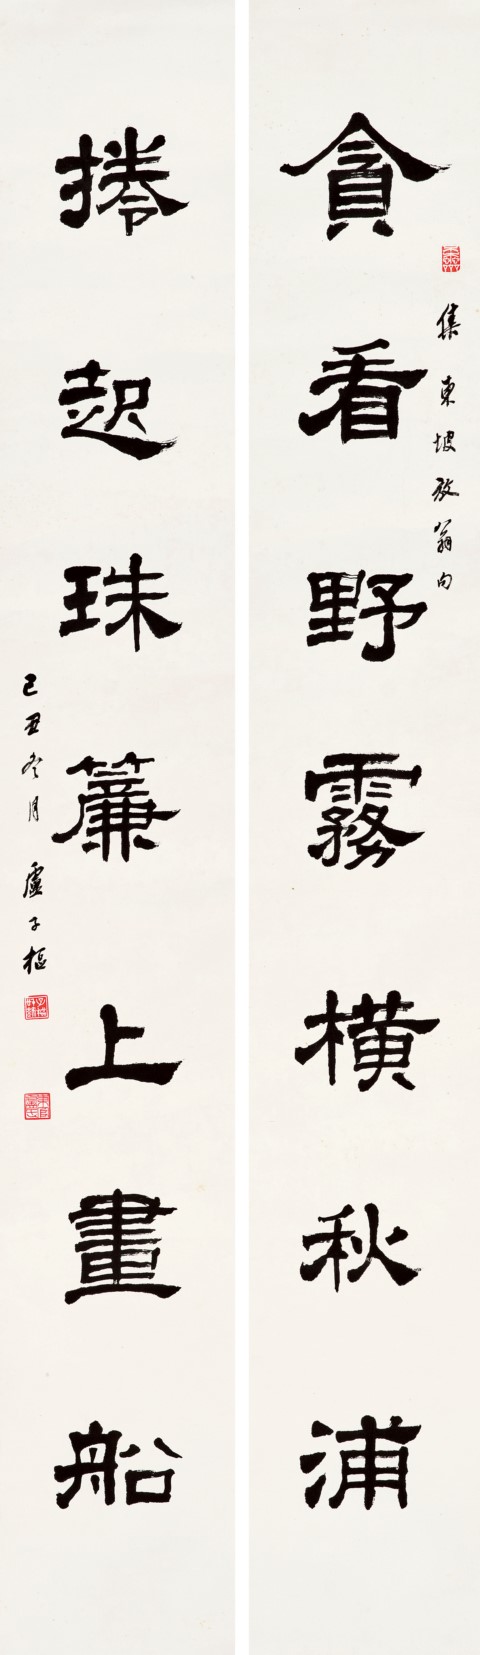 集東坡放翁句
貪看野霧橫秋浦
捲起珠簾上畫船
己丑冬月 盧子樞